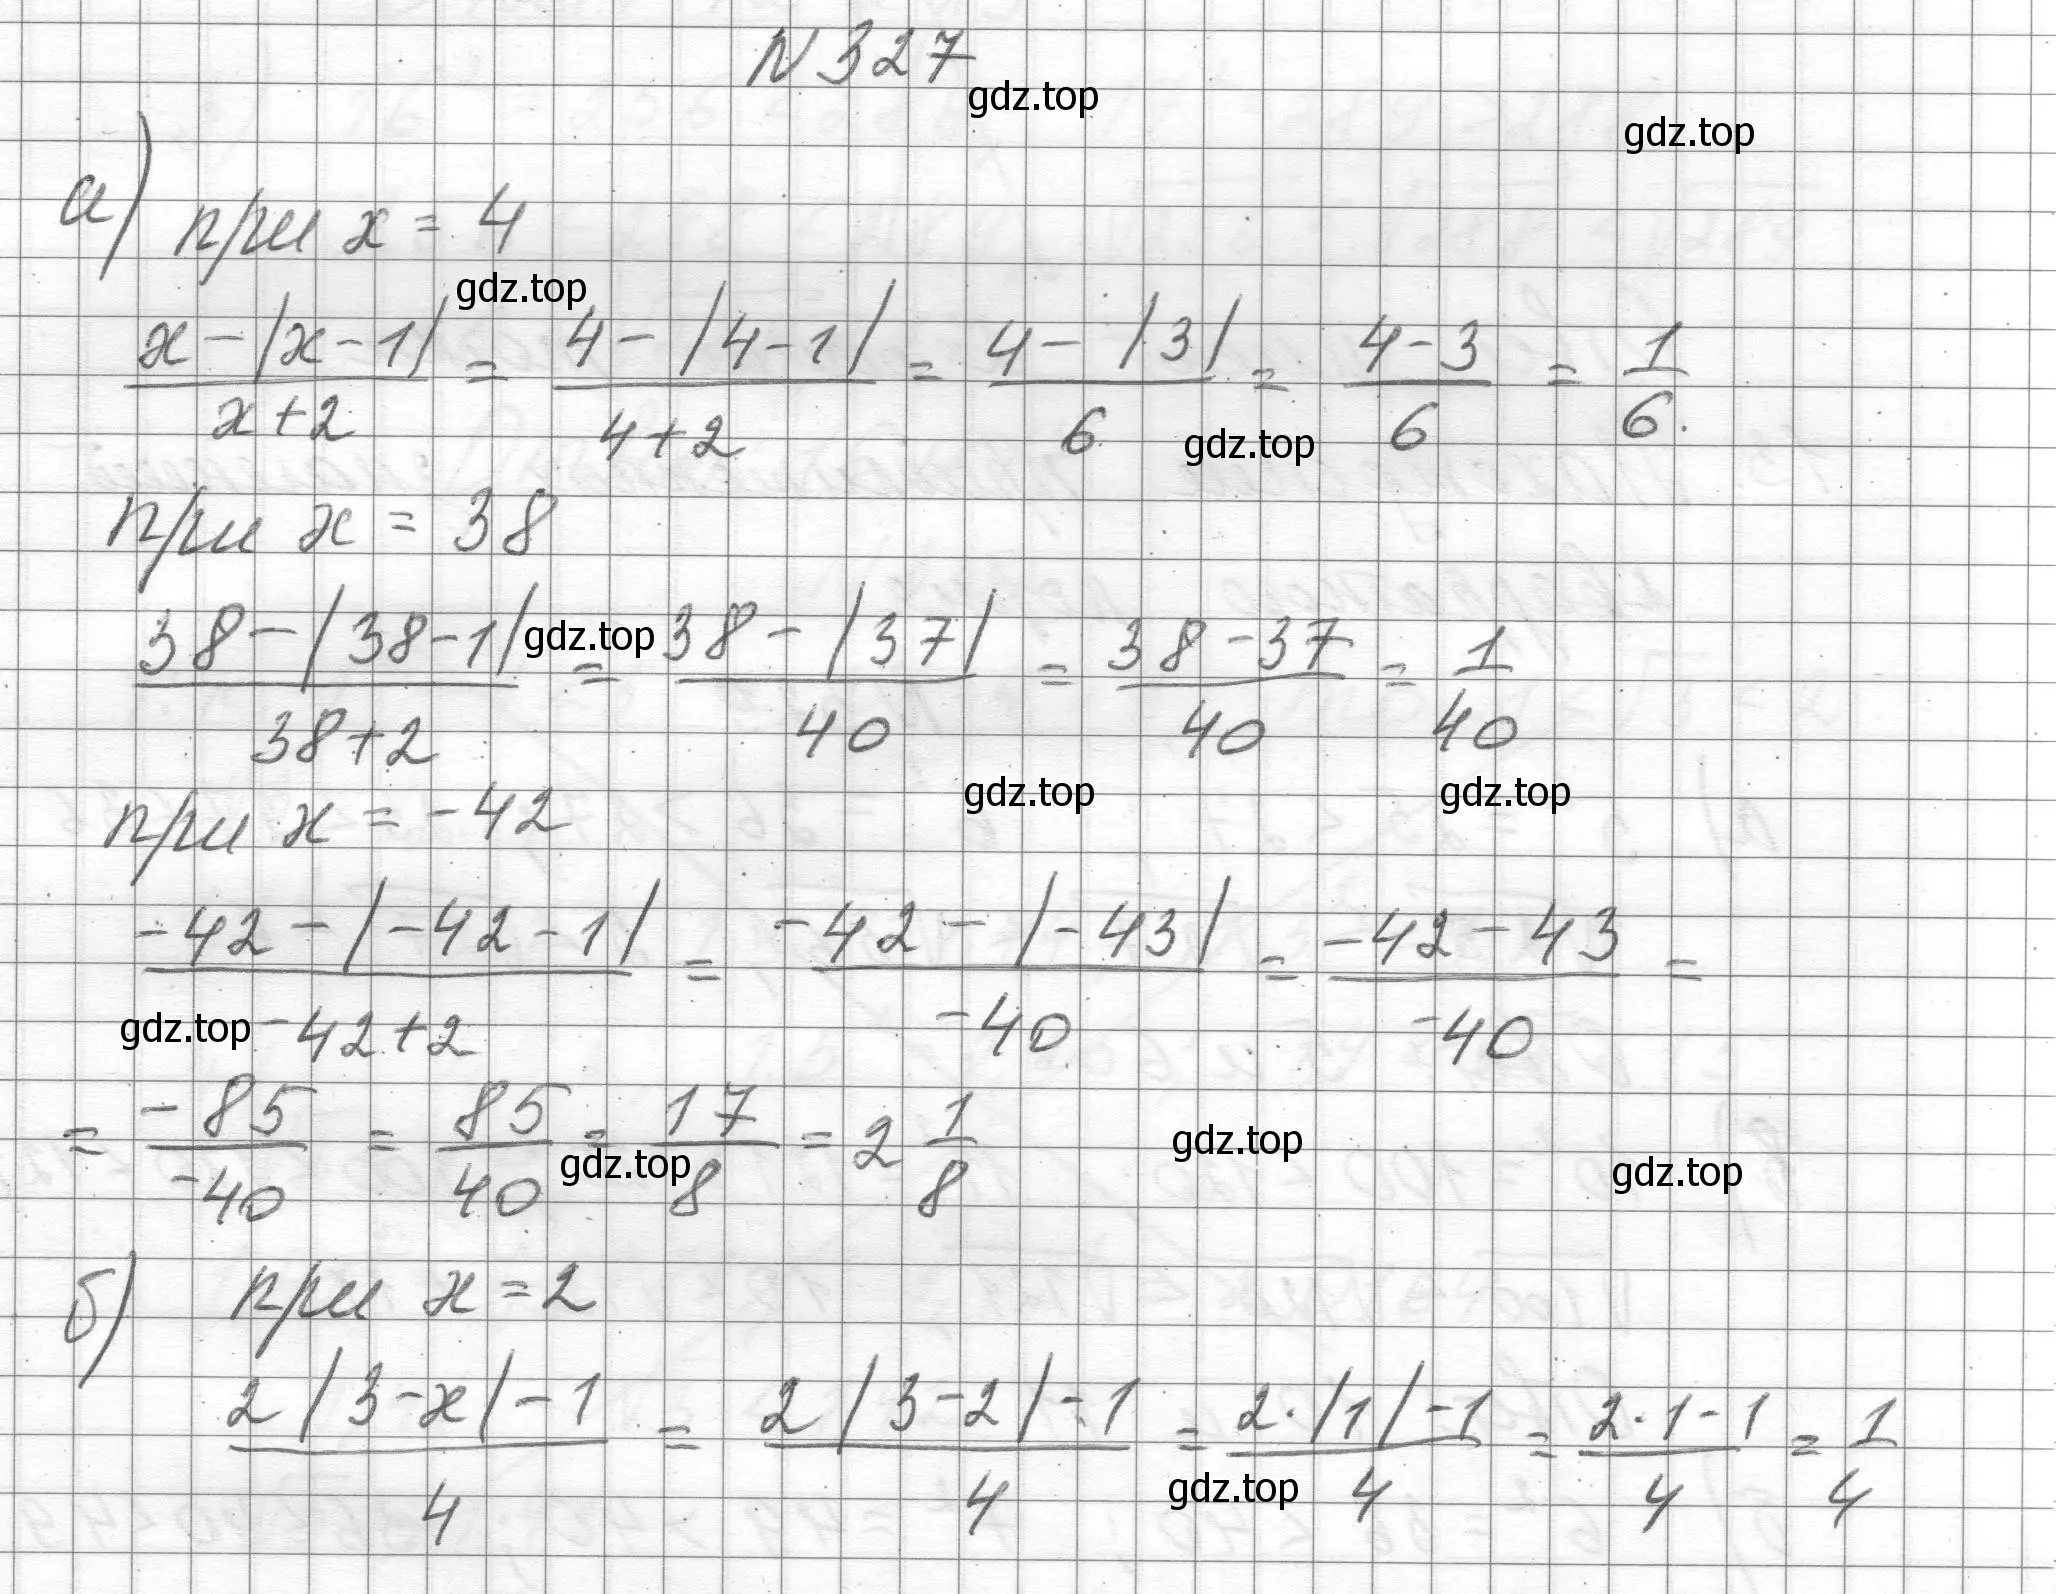 N 327
gdz.top
gdz.top
а) при x = 4
gdz.top
x-|x-1| / x+2 = 4-|4-1| / 4+2 = 4-|3| / 6 = 4-3 / 6 = 1/6.
gdz.top
при x = 38
38-|38-1| / 38+2 = 38-|37| / 40 = 38-37 / 40 = 1/40
gdz.top
при x = -42
gdz.top
gdz.top
-42-|-42-1| / -42+2 = -42-|-43| / -40 = -42-43 / -40 =
gdz.top
= -85/-40 = 85/40 = 17/8 = 2 1/8
gdz.top
gdz.top
gdz.top
б) при x = 2
2|3-x|-1 / 4 = 2|3-2|-1 / 4 = 2·|1|-1 / 4 = 2·1-1 / 4 = 1/4
gdz.top